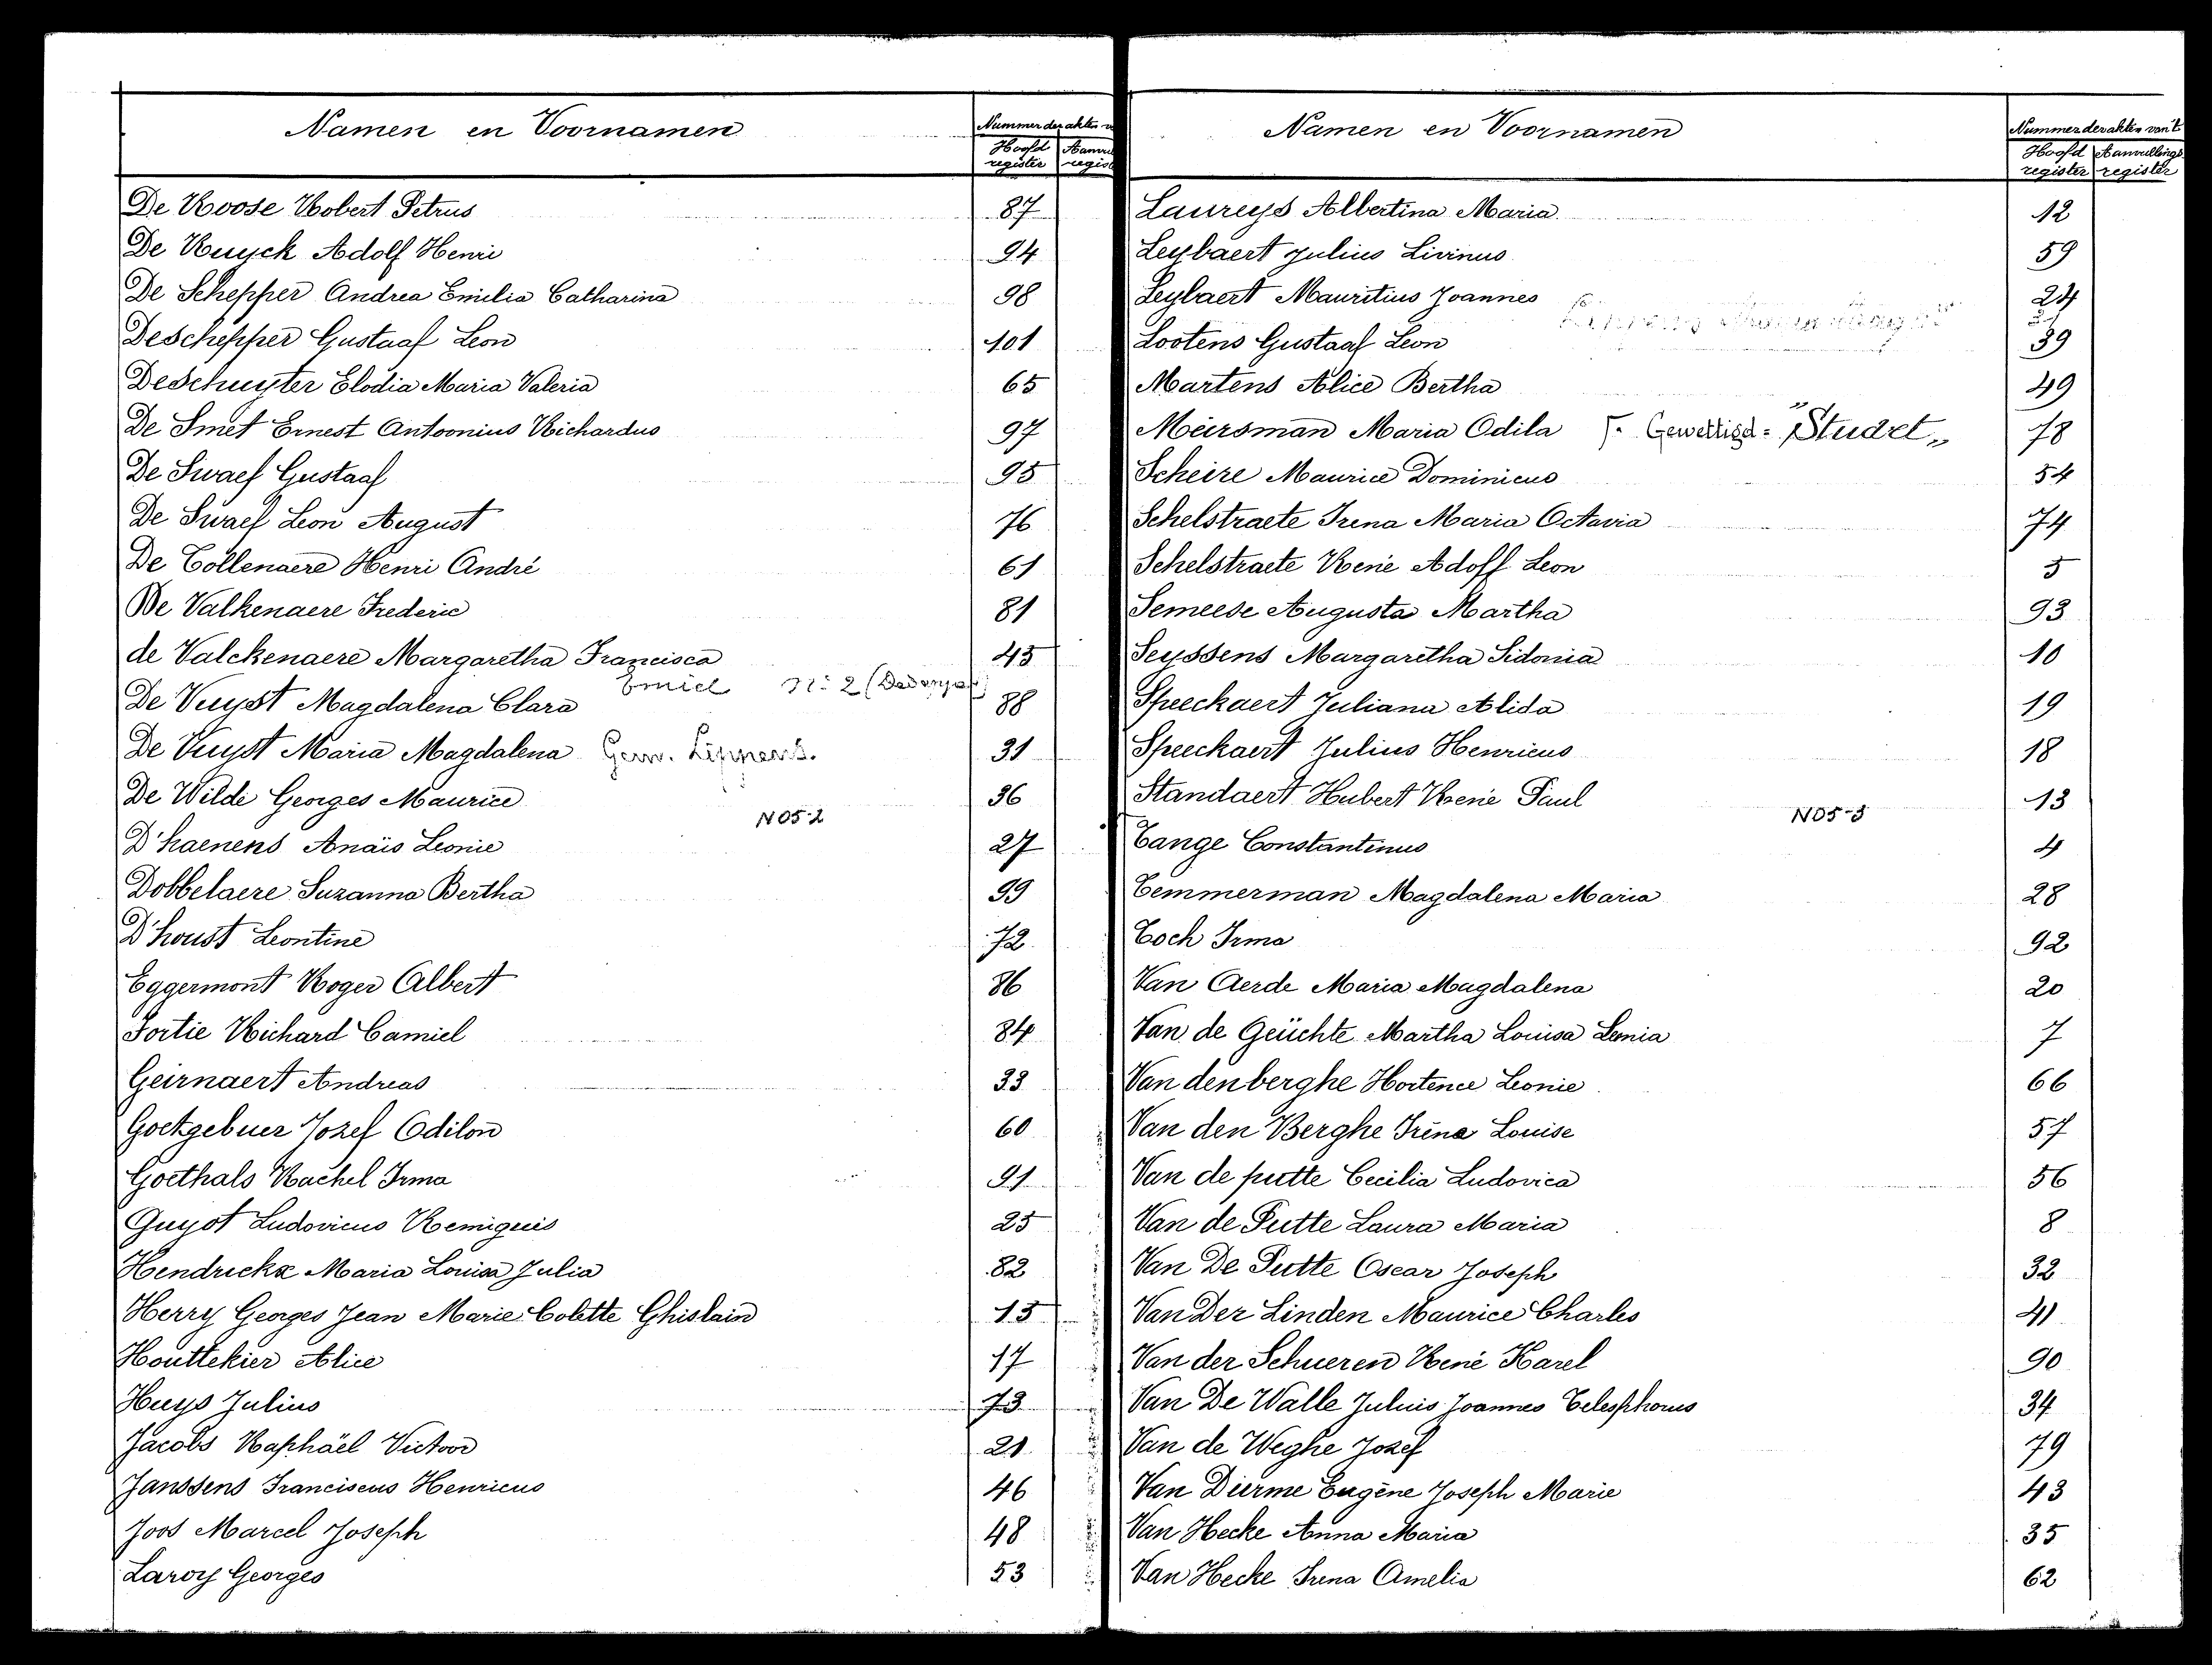 Namen en Voornamen
Nummer der akten
Hoofd register
De Roose Robert Petrus 87
De Ruyck Adolf Henri 94
De Schepper Andrea Emilia Catharina 98
Deschepper Gustaaf Leon 101
Deschuyter Elodia Maria Valeria 65
De Smet Ernest Antoonius Richardus 97
De Swaef Gustaaf 95
De Swaef Leon August 76
De Tollenaere Henri André 61
De Valkenaere Frederic 81
de Valckenaere Margaretha Francisca 45
Emiel No 2
De Vuyst Magdalena Clara 88
De Vuyst Maria Magdalena Gew. Lippens. 31
De Wilde Georges Maurice 36
N05-2
D'haenens Anaïs Leonie 27
Dobbelaere Suzanna Bertha 99
D'houst Leontine 72
Eggermont Roger Albert 86
Fortie Richard Camiel 84
Geirnaert Andreas 33
Goetgebuer Jozef Odilon 60
Goethals Rachel Irma 91
Guyot Ludovicus Remigius 25
Hendrickx Maria Louisa Julia 82
Herry Georges Jean Marie Colette Ghislain 15
Houttekier Alice 17
Huys Julius 73
Jacobs Raphaël Victoor 21
Janssens Franciscus Henricus 46
Joos Marcel Joseph 48
Laroy Georges 53
Namen en Voornamen
Nummer der akten van 't
Hoofd register Aanvullings register
Laureys Albertina Maria 12
Leybaert Julius Livinus 59
Leybaert Mauritius Joannes 24
Lootens Gustaaf Leon 39
Martens Alice Bertha 49
Meirsman Maria Odila Gewettigd = "Studet" 78
Scheire Maurice Dominicus 54
Schelstraete Irena Maria Octavia 74
Schelstraete René Adolf Leon 5
Semeese Augusta Martha 93
Seyssens Margaretha Sidonia 10
Speeckaert Juliana Alida 19
Speeckaert Julius Henricus 18
Standaert Hubert René Paul 13
N05-3
Tange Constantinus 4
Temmerman Magdalena Maria 28
Toch Irma 92
Van Aerde Maria Magdalena 20
Van de Geüchte Martha Louisa 7
Van denberghe Hortence Leonie 66
Van den Berghe Iréna Louise 57
Van de putte Cecilia Ludovica 56
Van de Putte Laura Maria 8
Van De Putte Oscar Joseph 32
Van Der Linden Maurice Charles 41
Van der Schueren René Karel 90
Van De Walle Julius Joannes Telesphorus 34
Van de Weghe Jozef 79
Van Duerme Eugène Joseph Marie 43
Van Hecke Anna Maria 35
Van Hecke Irena Amelia 62